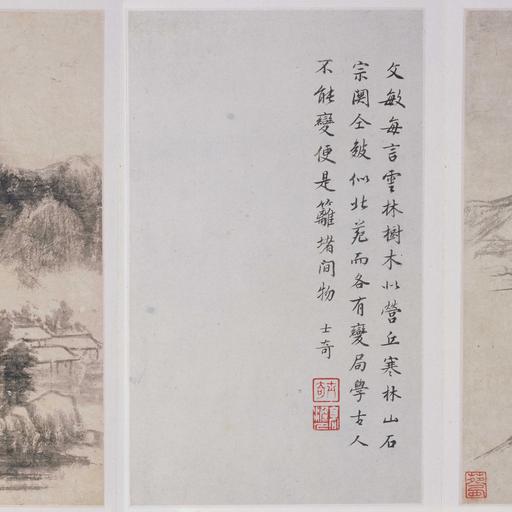 文敏每言雲林樹木似營丘寒林山石
宗關仝皴似北苑而各有變局學古人
不能變便是籬堵間物 士奇
士奇